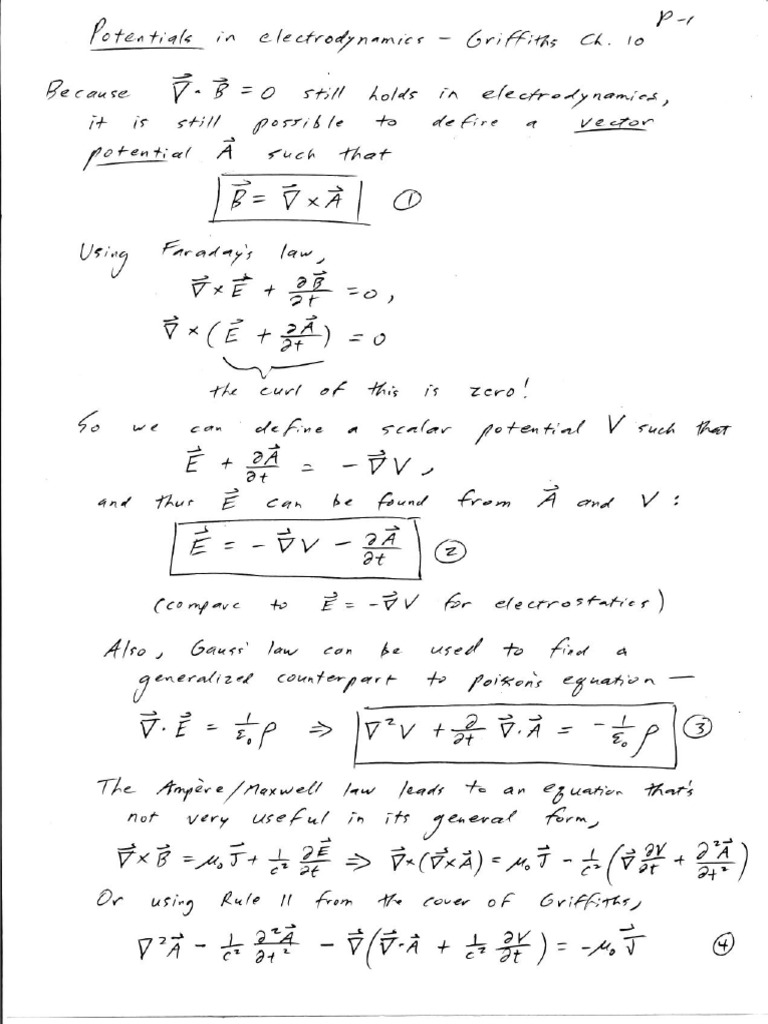 P-1
Potentials in electrodynamics – Griffiths Ch. 10
Because ∇⃗ · B⃗ = 0 still holds in electrodynamics,
it is still possible to define a vector
potential A⃗ such that
B⃗ = ∇⃗ × A⃗ ①
Using Faraday's law,
∇⃗ × E⃗ + ∂B⃗/∂t = 0,
∇⃗ × (E⃗ + ∂A⃗/∂t) = 0
the curl of this is zero!
So we can define a scalar potential V such that
E⃗ + ∂A⃗/∂t = – ∇⃗V,
and thus E⃗ can be found from A⃗ and V :
E⃗ = – ∇⃗V – ∂A⃗/∂t ②
(compare to E⃗ = –∇⃗V for electrostatics)
Also, Gauss' law can be used to find a
generalized counterpart to Poisson's equation —
∇⃗ · E⃗ = 1/ε₀ ρ ⇒ ∇²V + ∂/∂t ∇⃗ · A⃗ = – 1/ε₀ ρ ③
The Ampère/Maxwell law leads to an equation that's
not very useful in its general form,
∇⃗ × B⃗ = μ₀ J⃗ + 1/c² ∂E⃗/∂t ⇒ ∇⃗ × (∇⃗ × A⃗) = μ₀ J⃗ – 1/c² (∇⃗ ∂V/∂t + ∂²A⃗/∂t²)
Or using Rule 11 from the cover of Griffiths,
∇²A⃗ – 1/c² ∂²A⃗/∂t² – ∇⃗(∇⃗·A⃗ + 1/c² ∂V/∂t) = –μ₀ J⃗ ④